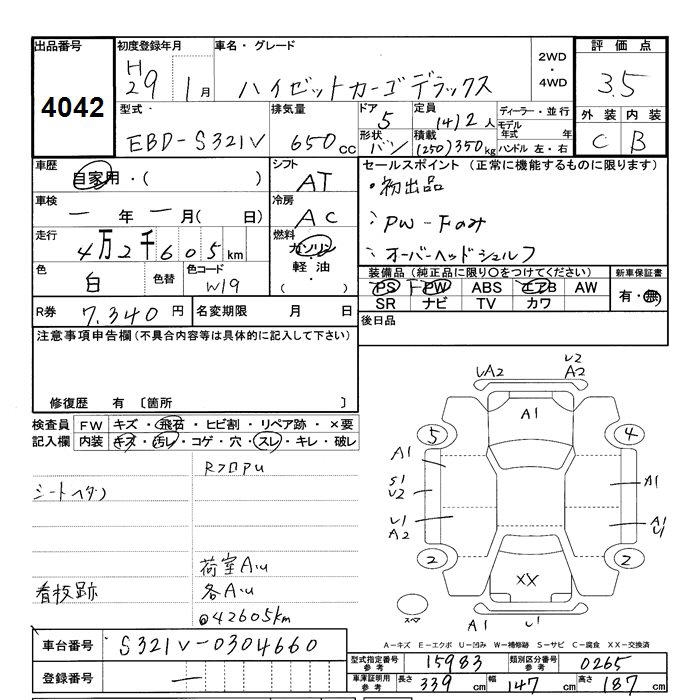 出品番号
4042
初度登録年月
H29 1月
車名・グレード
ハイゼットカーゴ デラックス
2WD・4WD
評価点
3.5
外装 内装
C B
型式・
EBD-S321V
排気量
650cc
ドア
5
形状
バン
定員
(4)2人
積載
(250)350kg
ディーラー・並行
モデル年式 年
ハンドル 左・右
車歴
自家用・( )
シフト
AT
セールスポイント (正常に機能するものに限ります)
・初出品
PW-Fのみ
オーバーヘッドシェルフ
車検
一年一月( 日)
冷房
AC
走行
4万2千605km
燃料
ガソリン
軽油・
( )
色
白
色替
色コード
W19
装備品 (純正品に限り○をつけてください)
PS PW ABS エアB AW
SR ナビ TV カワ
新車保証書
有・無
R券 7,340円
名変期限 月 日
後日品
注意事項申告欄 (不具合内容等は具体的に記入して下さい)
修復歴 有 〔箇所 〕
検査員記入欄
FW キズ・飛石・ヒビ割・リペア跡・×要
内装 キズ・汚レ・コゲ・穴・スレ・キレ・破レ
RフロPU
シートヘタリ
荷室A.U
看板跡
各A.U
@42605km
UA2
U2
A2
A1
5
4
A1
S1
U2
A1
U1
A2
A1
U1
2
2
XX
スペア
A1
U1
A-キズ E-エクボ U-凹み W-補修跡 S-サビ C-腐食 XX-交換済
車台番号 S321V-0304660
登録番号 一
型式指定番号 参考 15983
類別区分番号 参考 0265
車庫証明用 参考 長さ 339cm 幅 147cm 高さ 187cm